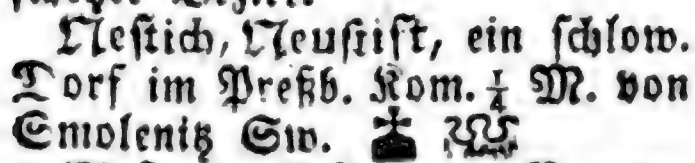 Neſtich, Neuſtift, ein ſchlow.
Dorf im Preßb. Kom. ¼ M. von
Smolenitz Sw.